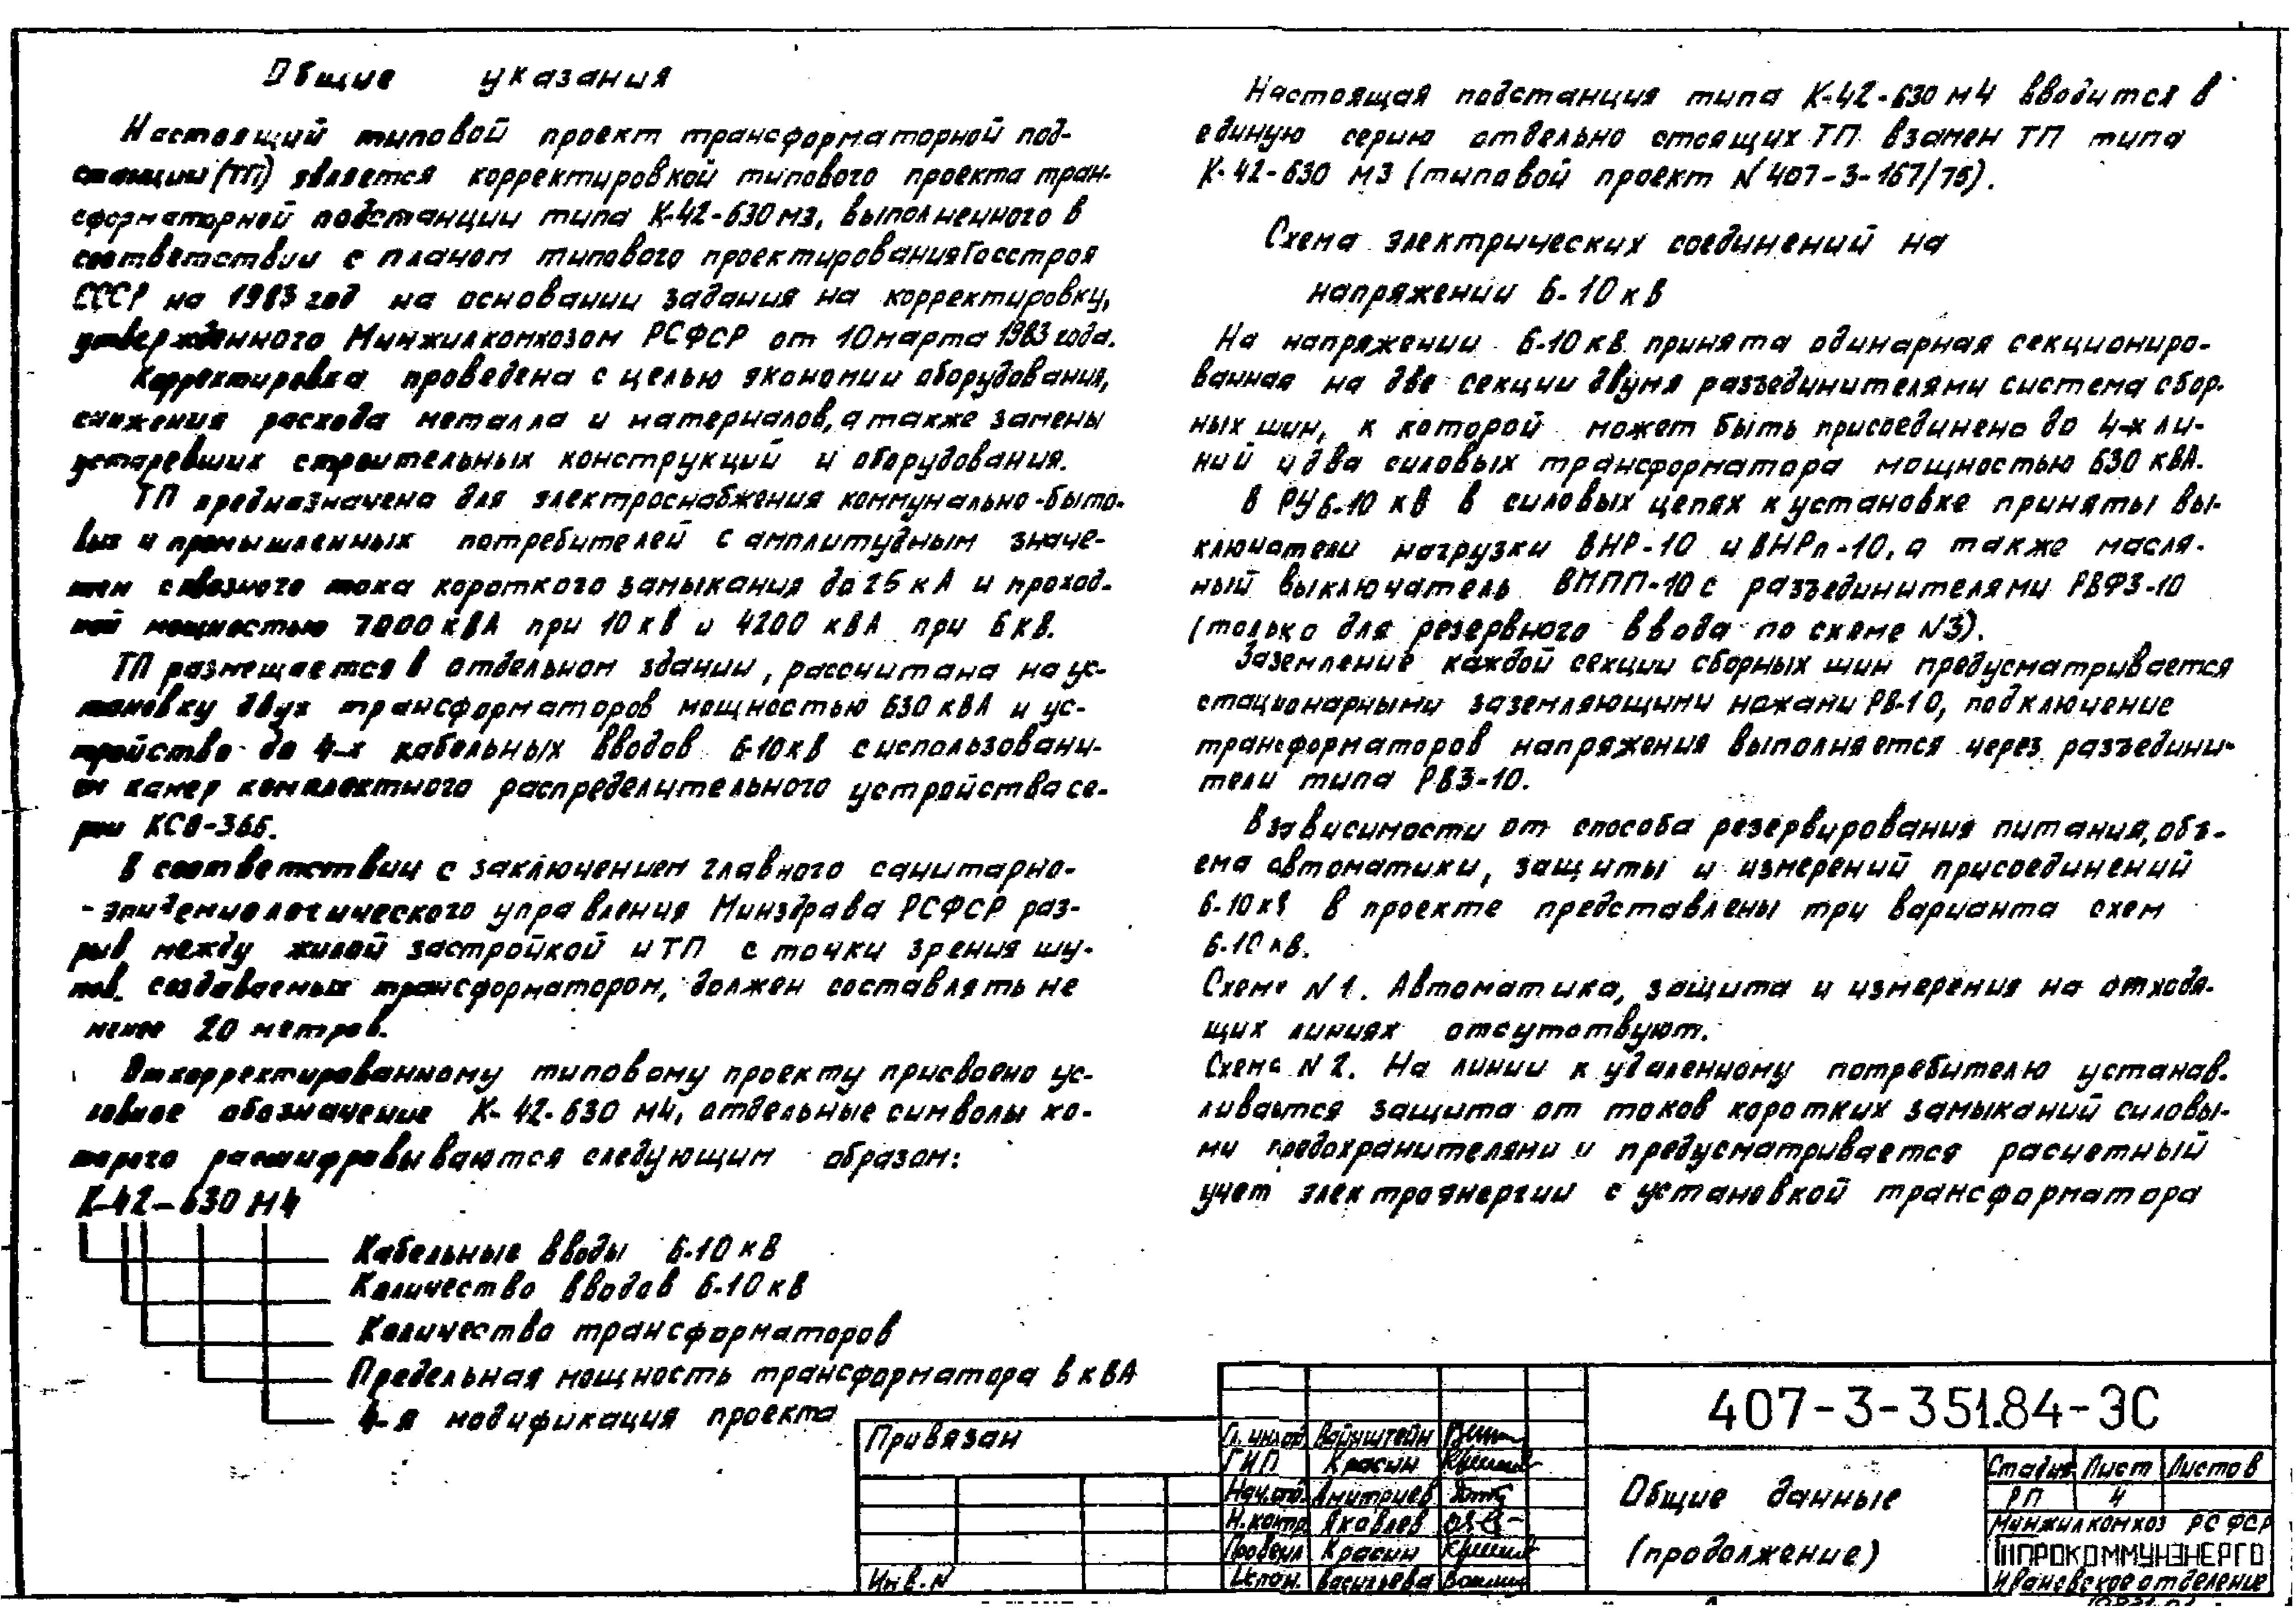 Общие указания
Настоящий типовой проект трансформаторной под-
станции (ТП) является корректировкой типового проекта тран-
сформаторной подстанции типа К-42-630 м3, выполненного в
соответствии с планом типового проектирования Госстроя
СССР на 1983 год на основании задания на корректировку,
утвержденного Минжилкомхозом РСФСР от 10 марта 1983 года.
Корректировка проведена с целью экономии оборудования,
снижения расхода металла и материалов, а также замены
устаревших строительных конструкций и оборудования.
ТП предназначена для электроснабжения коммунально-быто-
вых и промышленных потребителей с амплитудным значе-
нием сквозного тока короткого замыкания до 25 кА и проход-
ной мощностью 7000 кВА при 10 кВ и 4200 кВА при 6 кВ.
ТП размещается в отдельном здании, рассчитана на ус-
тановку двух трансформаторов мощностью 630 кВА и ус-
тройство до 4-х кабельных вводов 6-10 кВ с использовани-
ем камер комплектного распределительного устройства се-
рии КСО-366.
В соответствии с заключением главного санитарно-
-эпидемиологического управления Минздрава РСФСР раз-
рыв между жилой застройкой и ТП с точки зрения шу-
мов, создаваемых трансформатором, должен составлять не
менее 20 метров.
Откорректированному типовому проекту присвоено ус-
ловное обозначение К-42-630 м4, отдельные символы ко-
торого расшифровываются следующим образом:
К-42-630 м4
Кабельные вводы 6-10 кВ
Количество вводов 6-10 кВ
Количество трансформаторов
Предельная мощность трансформатора в кВА
4-я модификация проекта
Настоящая подстанция типа К-42-630 м4 вводится в
единую серию отдельно стоящих ТП взамен ТП типа
К-42-630 м3 (типовой проект N 407-3-167/75).
Схема электрических соединений на
напряжении 6-10 кВ
На напряжении 6-10 кВ принята одинарная секциониро-
ванная на две секции двумя разъединителями система сбор-
ных шин, к которой может быть присоединено до 4-х ли-
ний и два силовых трансформатора мощностью 630 кВА.
В РУ 6-10 кВ в силовых цепях к установке приняты вы-
ключатели нагрузки ВНР-10 и ВНРп-10, а также масля-
ный выключатель ВМПП-10 с разъединителями РВФЗ-10
(только для резервного ввода по схеме N3).
Заземление каждой секции сборных шин предусматривается
стационарными заземляющими ножами РВ-10, подключение
трансформаторов напряжения выполняется через разъедини-
тели типа РВЗ-10.
В зависимости от способа резервирования питания, объ-
ема автоматики, защиты и измерений присоединений
6-10 кВ в проекте представлены три варианта схем
6-10 кВ.
Схема N 1. Автоматика, защита и измерения на отходя-
щих линиях отсутствуют.
Схема N 2. На линии к удаленному потребителю устанав-
ливается защита от токов коротких замыканий силовы-
ми предохранителями и предусматривается расчетный
учет электроэнергии с установкой трансформатора
Привязан
Инв. N
Гл. инж. Вайнштейн
ГИП Красин
Нач. отд. Дмитриев
Н. контр. Яковлев
Проверил Красин
Исполн. Васильева
407-3-351.84-ЭС
Общие данные
(продолжение)
Стадия Лист Листов
РП 4
Минжилкомхоз РСФСР
ГИПРОКОММУНЭНЕРГО
Ивановское отделение